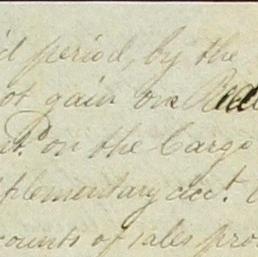 'd period, by the
ot gain on
nt. on the Cargo
plementary acct.
counts of sales pro